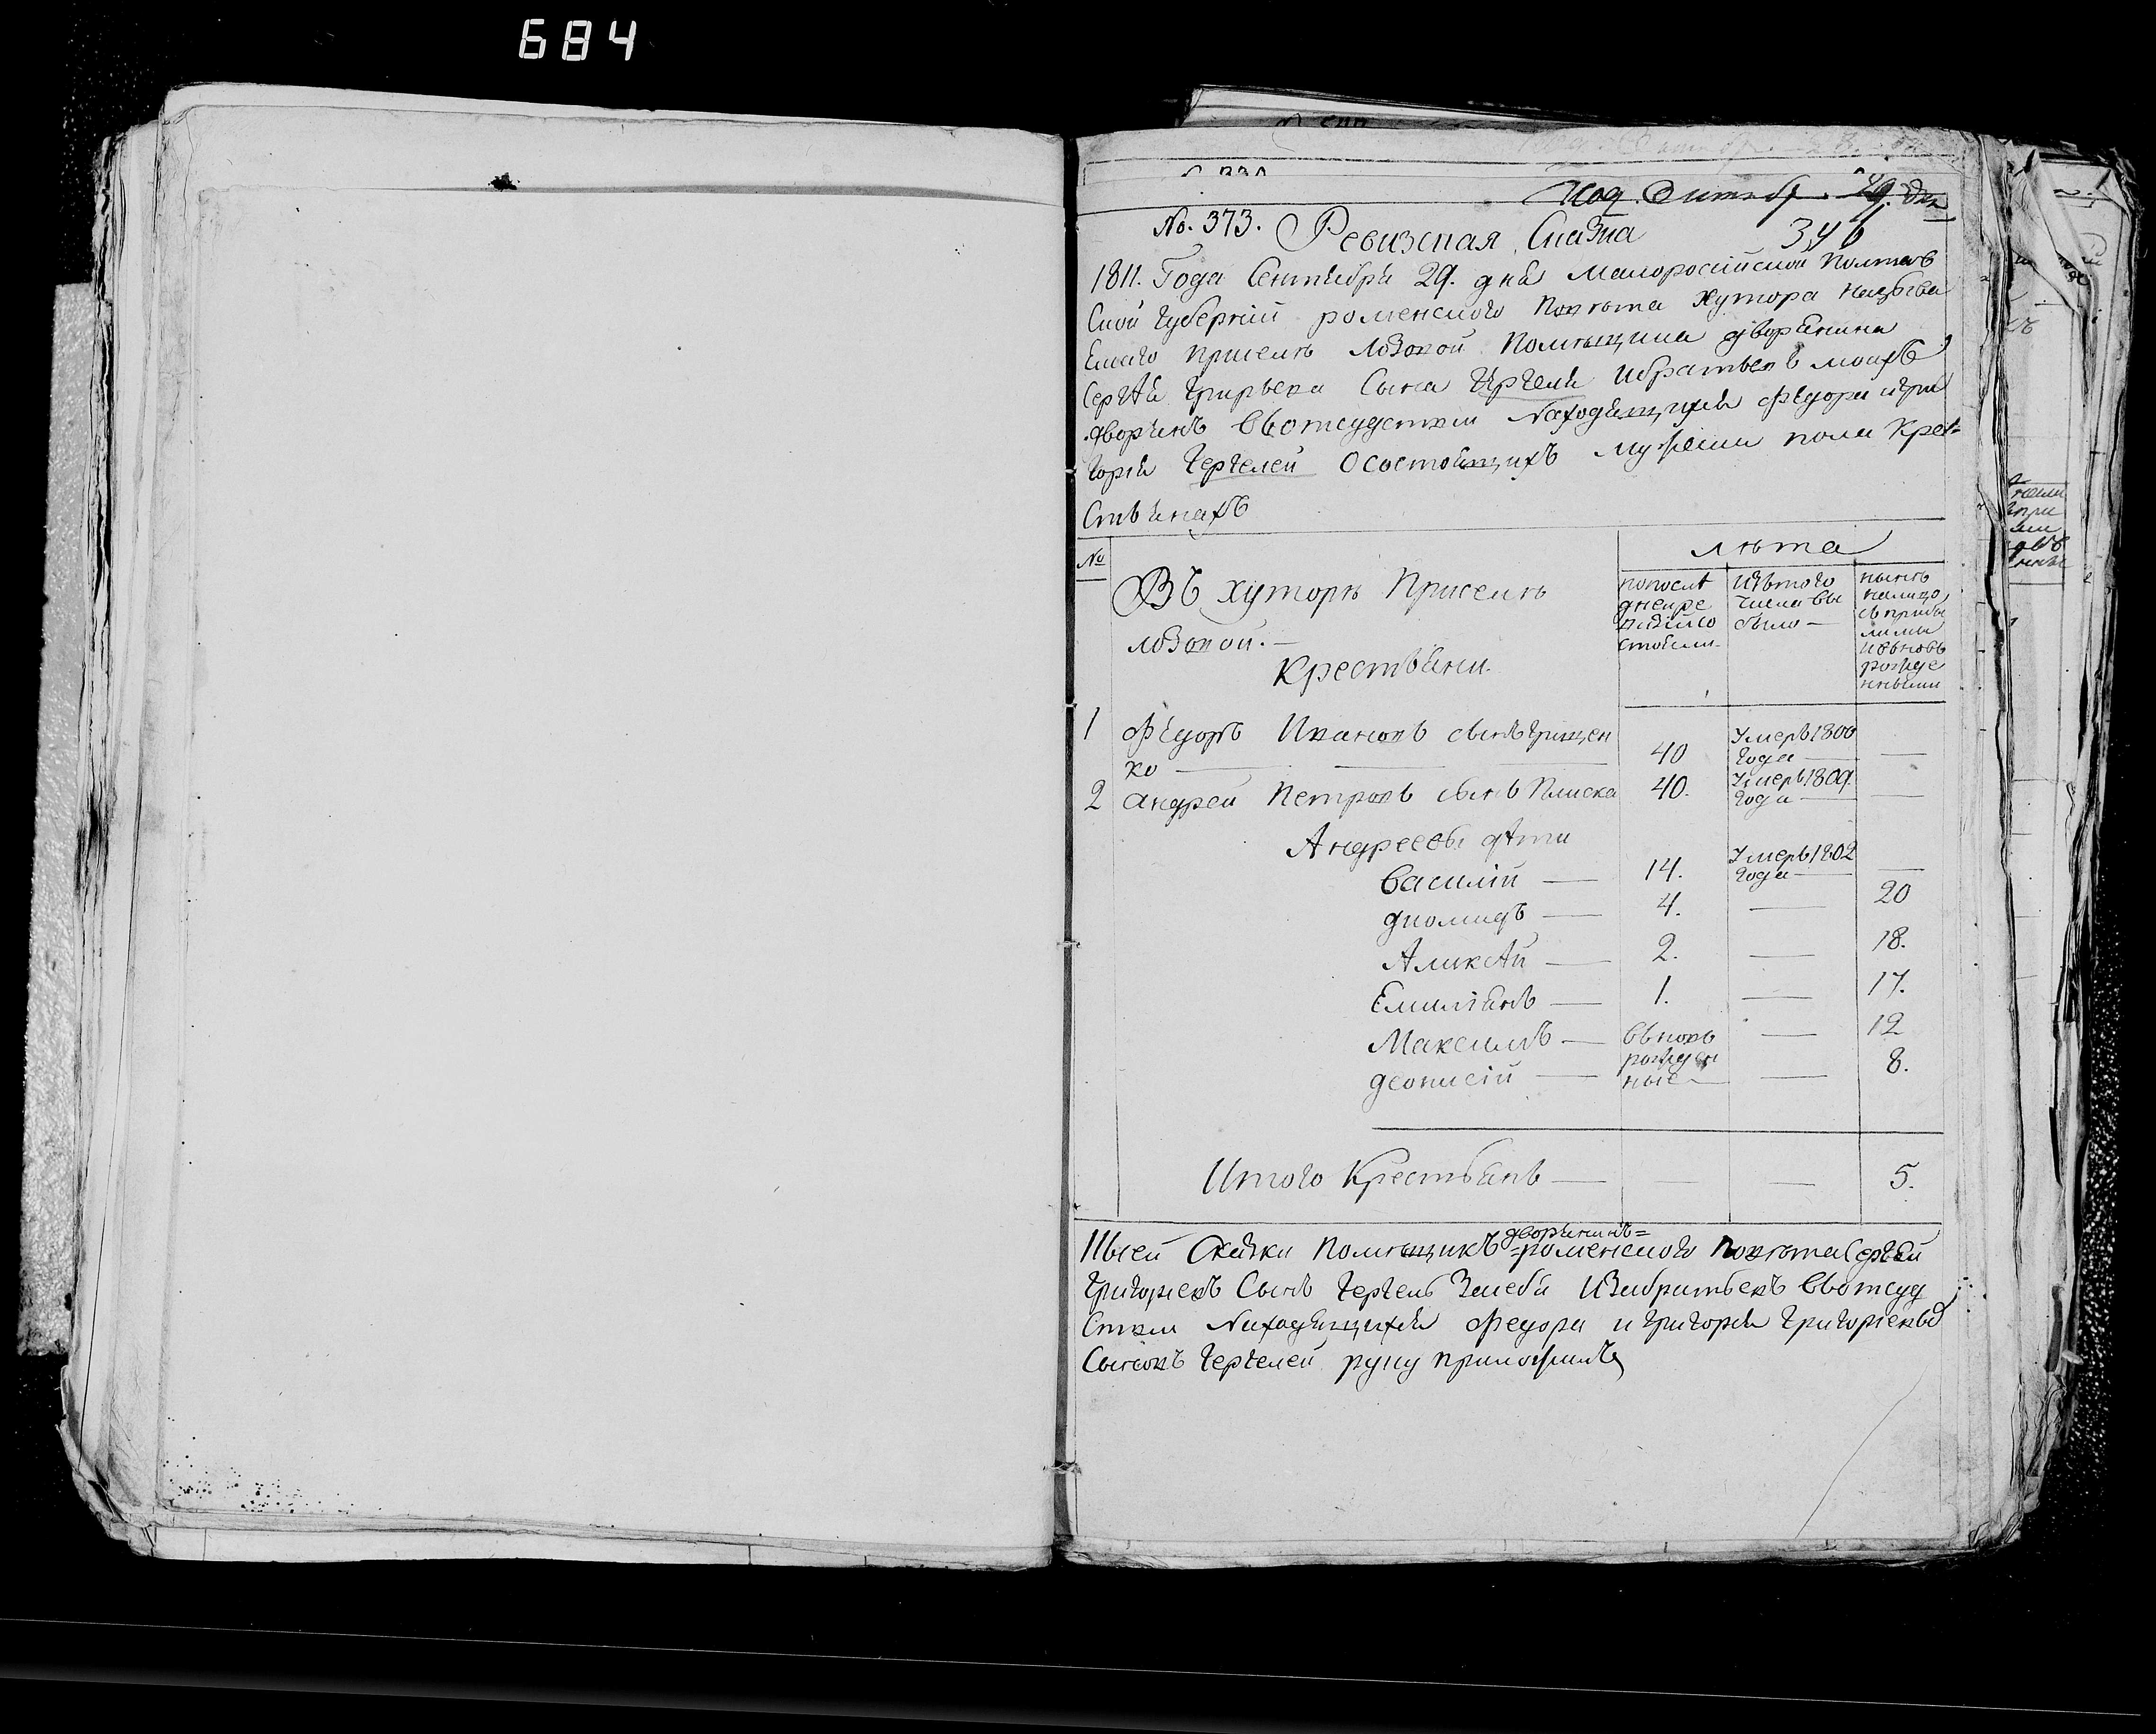 684
Под. Октябр. 29. дня
No. 373. Ревизская Сказка
346
1811. Года Сентебря 29. дня Малоросiйской Полтав
Ской Губернiи роменского повѣта хутора называ
Емаго приселк Лозовой Помѣщика дворенина
Сергѣя Григорьева Сына Чергеля ибратьевъ моихъ
дворянъ вьотсудствии Находящихся Федора игри
горiя Чергелей Осостоящихъ мужеска пола Кре=
Стьянахъ
№
лѣта
Въ хуторѣ Приселкѣ
лозовой.—
Крестьяни.
попослѣ
днейре
визiисо
стояли.
Изътого
числа вы
было—
нынѣ
налицо
съприбы
лыми
ивьновь
рожде
нными
1 Федоръ Ивановъ сынъ грищен
ко — 40 Умеръ 1806 Года —
2 андрей Петровъ сынъ Плиска 40. Умеръ 1809. Года —
Андреевы дѣти
Василiй — 14. Умеръ 1802 Года —
диомидъ — 4. — 20
Аликсѣй — 2. — 18.
Емилiянъ — 1. — 17.
Максимъ — вьновь — 12
рожден
деонисiй — ные — — 8.
Итого Крестьянъ — — — 5.
дворянинъ=
Ксей Скаски Помѣщикъ =роменского повѣта Сергѣй
Григорiевъ Сынъ Чергель Засебя Изабратьевъ вьотсуд
Ствии Находящихся Федора и Григория Григорiевыхъ
Сыновъ Чергелей руку приложилъ